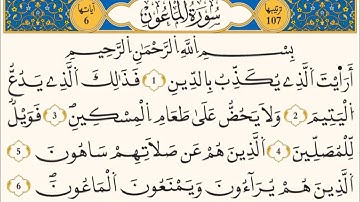 ترتيبها 107 سُورَةُ المَاعُونِ آياتها 6
بِسْمِ اللَّهِ الرَّحْمَٰنِ الرَّحِيمِ
أَرَأَيْتَ الَّذِي يُكَذِّبُ بِالدِّينِ ١ فَذَٰلِكَ الَّذِي يَدُعُّ
الْيَتِيمَ ٢ وَلَا يَحُضُّ عَلَىٰ طَعَامِ الْمِسْكِينِ ٣ فَوَيْلٌ
لِّلْمُصَلِّينَ ٤ الَّذِينَ هُمْ عَن صَلَاتِهِمْ سَاهُونَ ٥
الَّذِينَ هُمْ يُرَاءُونَ وَيَمْنَعُونَ الْمَاعُونَ ٦